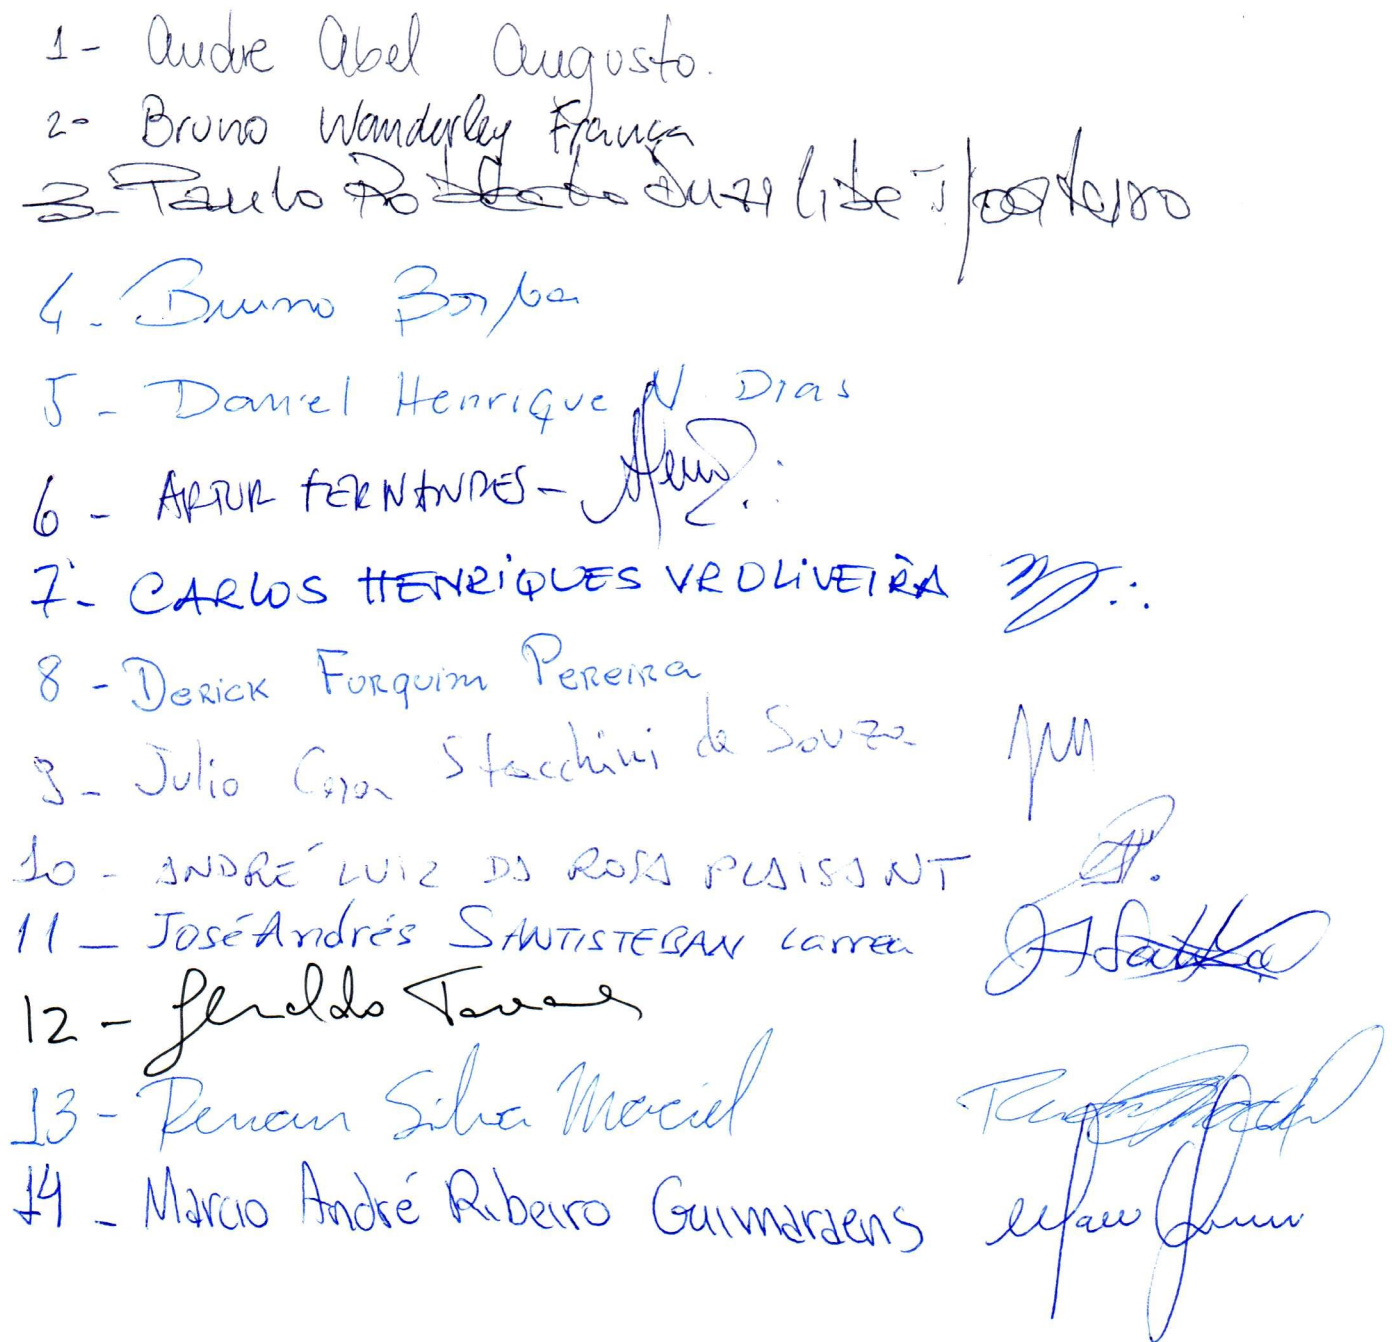 1- Andre Abel Augusto.
2- Bruno Wanderley França
3- Paulo
4- Bruno Borba
5- Daniel Henrique N. Dias
6- ARTUR FERNANDES-
7- CARLOS HENRIQUES VR OLIVEIRA
8- Derick Furquim Pereira
9- Julio Stacchini de Souza
10- ANDRÉ LUIZ DA ROSA PLAISANT
11- José Andrés SANTISTEBAN Larrea
12- Geraldo Tavares
13- Renan Silva Maciel
14- Marcio André Ribeiro Guimaraens